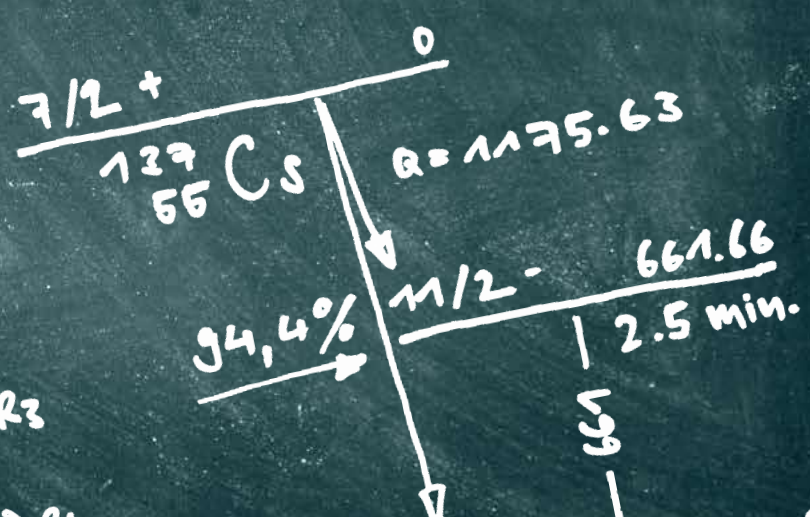 0
7/2 +
137
55 Cs
Q=1175.63
11/2 - 661.66
94,4%
2.5 min.
R3